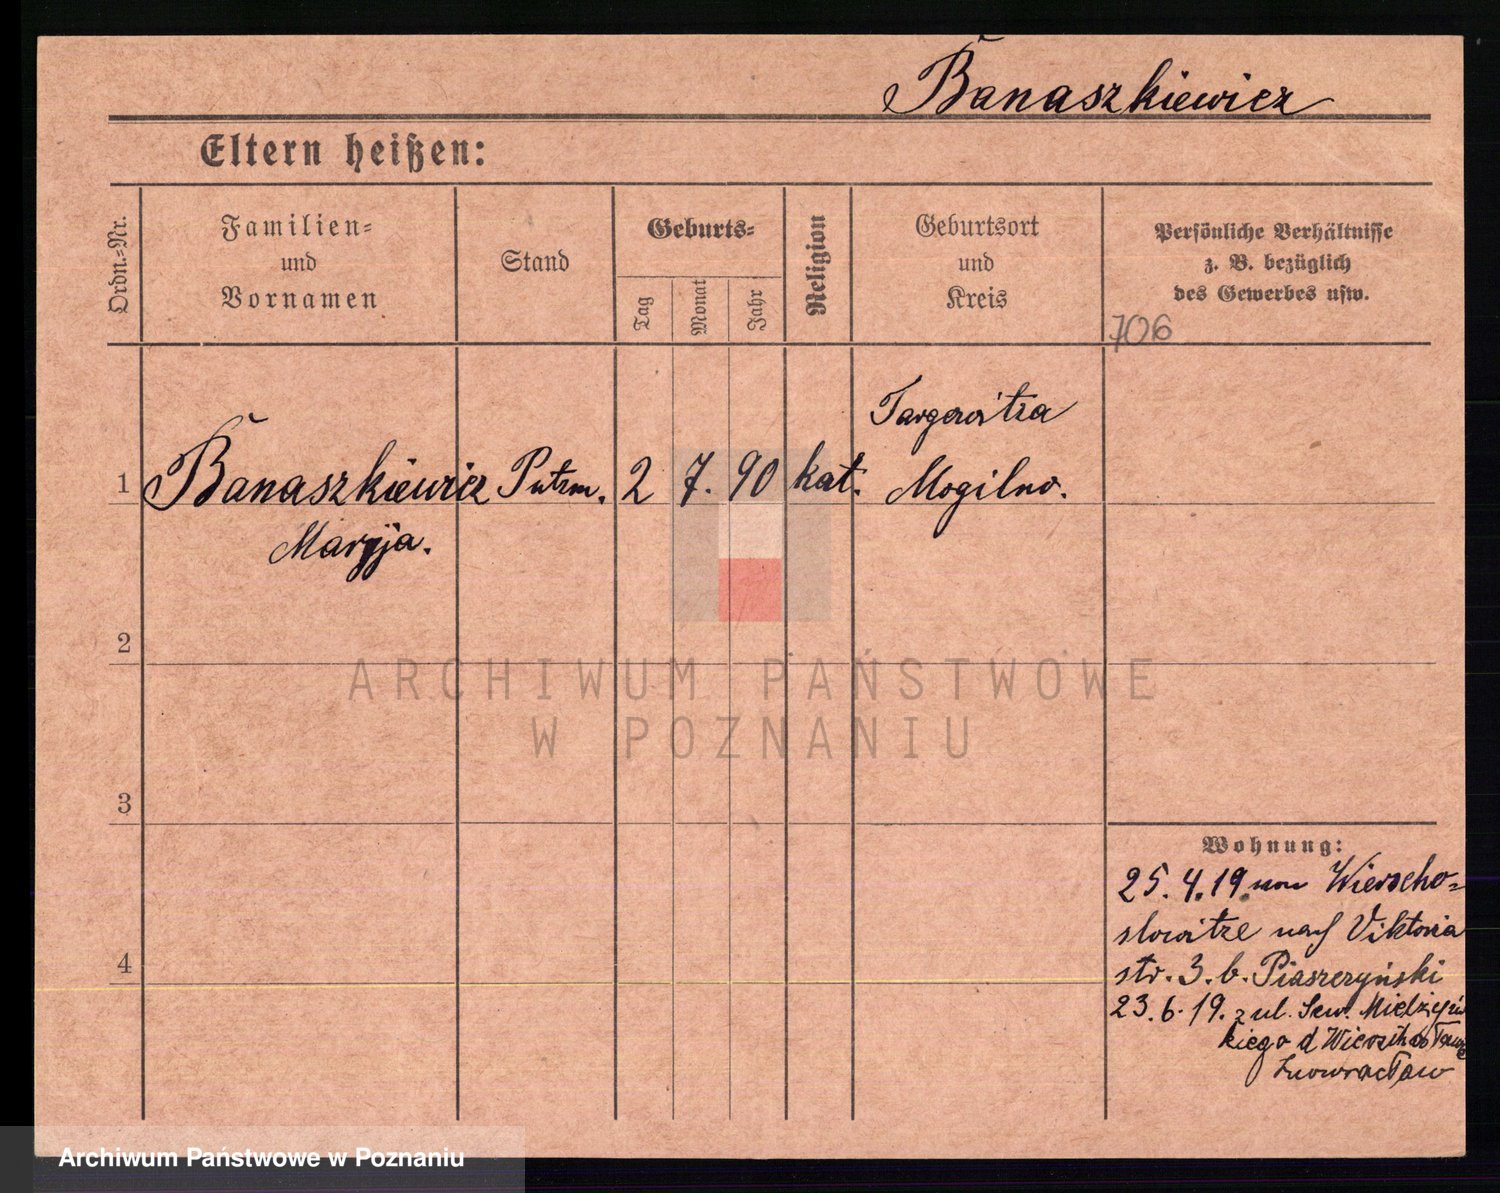 Banaszkiewicz
Eltern heißen:
Ordn.-Nr.
Familien-
und
Vornamen
Stand
Geburts-
Tag
Monat
Jahr
Religion
Geburtsort
und
Kreis
Persönliche Verhältnisse
z. B. bezüglich
des Gewerbes usw.
706
1
Banaszkiewicz Putzm. 2 7. 90 kat.
Maryja.
Targowitza
Mogilno.
2
3
4
ARCHIWUM PAŃSTWOWE
W POZNANIU
Wohnung:
25.4.19 von Wierscho-
slowitze nach Viktoria
str. 3. b. Piaszczyński
23.6.19. z ul. Sew.
kiego d
Inowrocław
Archiwum Państwowe w Poznaniu